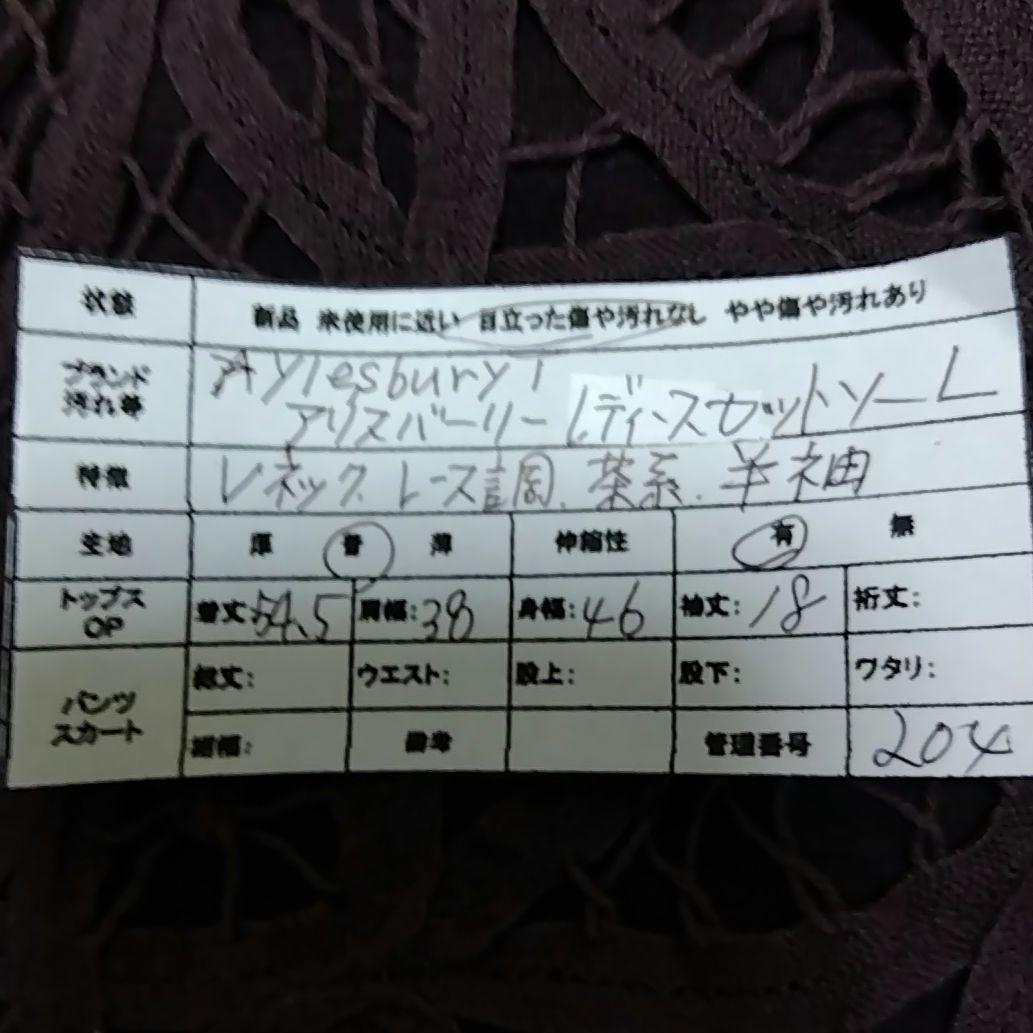 状態 新品 未使用に近い 目立った傷や汚れなし やや傷や汚れあり
ブランド 汚れ等 Aylesbury
アリスバーリー レディースセットソー L
特徴 Vネック レース調 茶系 半袖
生地 厚 普 薄 伸縮性 有 無
トップス OP 着丈:54.5 肩幅:38 身幅:46 袖丈:18 裄丈:
パンツ スカート 総丈: ウエスト: 股上: 股下: ワタリ:
裾幅: 備考 管理番号 204